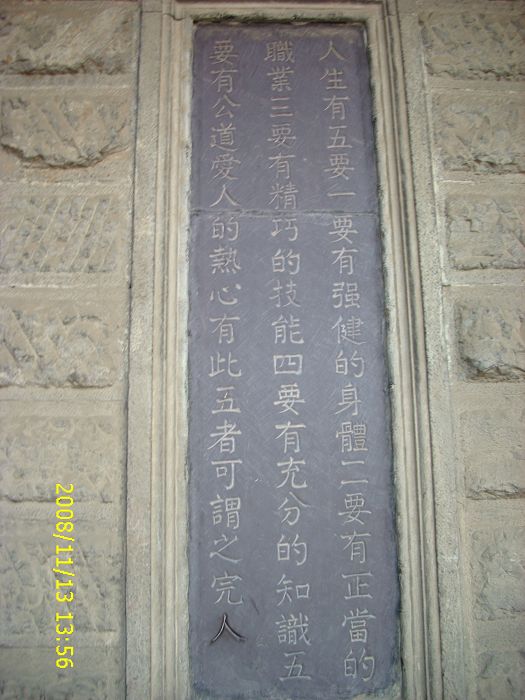 人生有五要一要有强健的身體二要有正當的
職業三要有精巧的技能四要有充分的知識五
要有公道愛人的熱心有此五者可謂之完人
2008/11/13 13:56